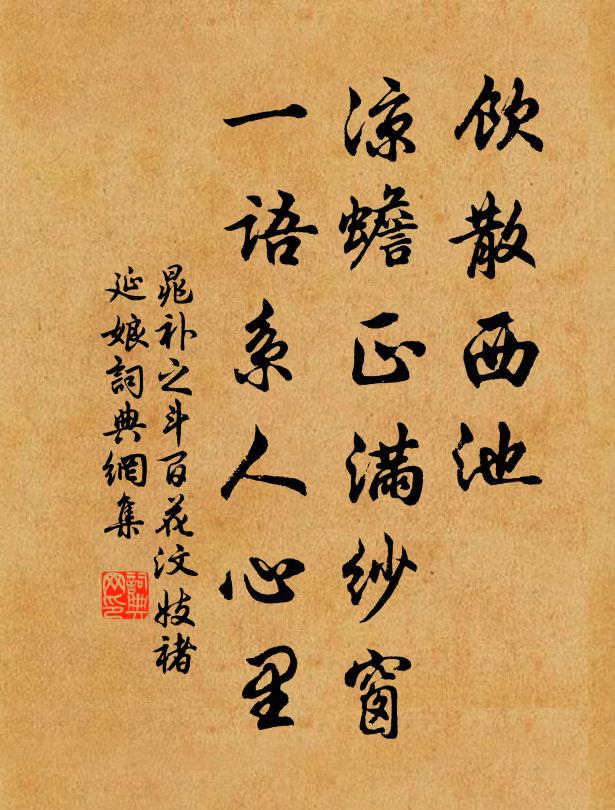 飲散西池
涼蟾正滿紗窗
一語系人心里
晁补之斗百花汶妓褚
延娘詞典網集
詞典
网印